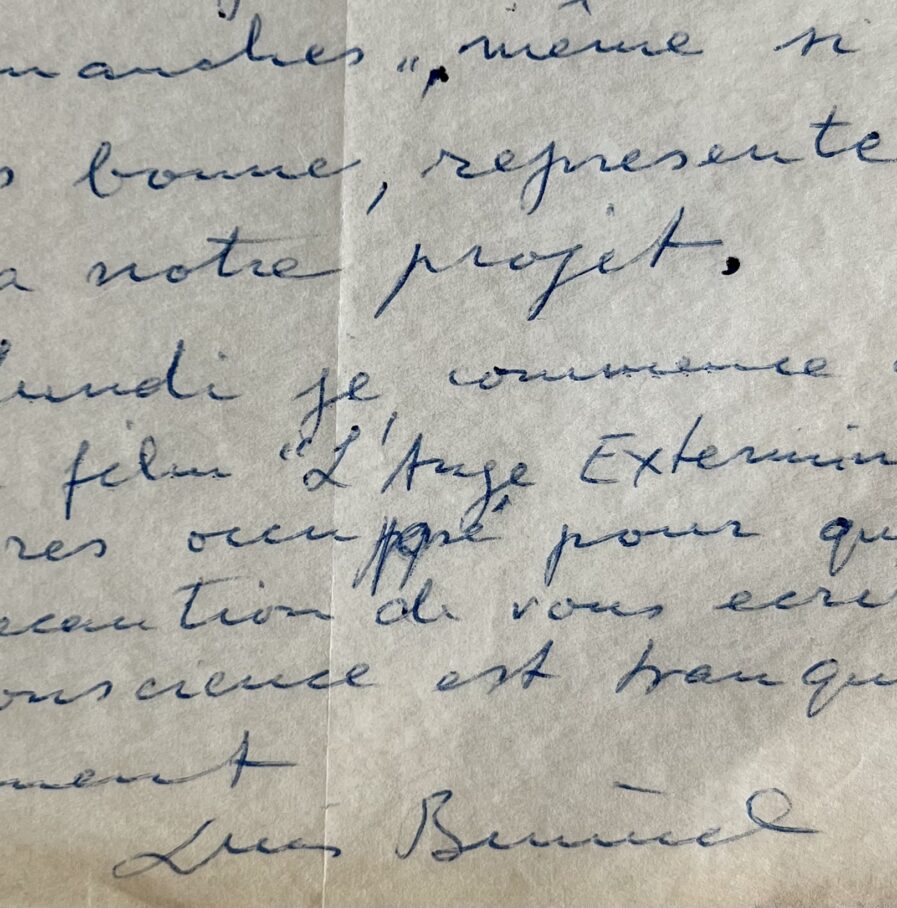 manches", même si
s bonne, representе
a notre projet.
lundi je commence
film "L'Ange Extermin
res occuppé pour qu
ecaution de vous ecri
onscience est tranqu
ment
Luis Buñuel